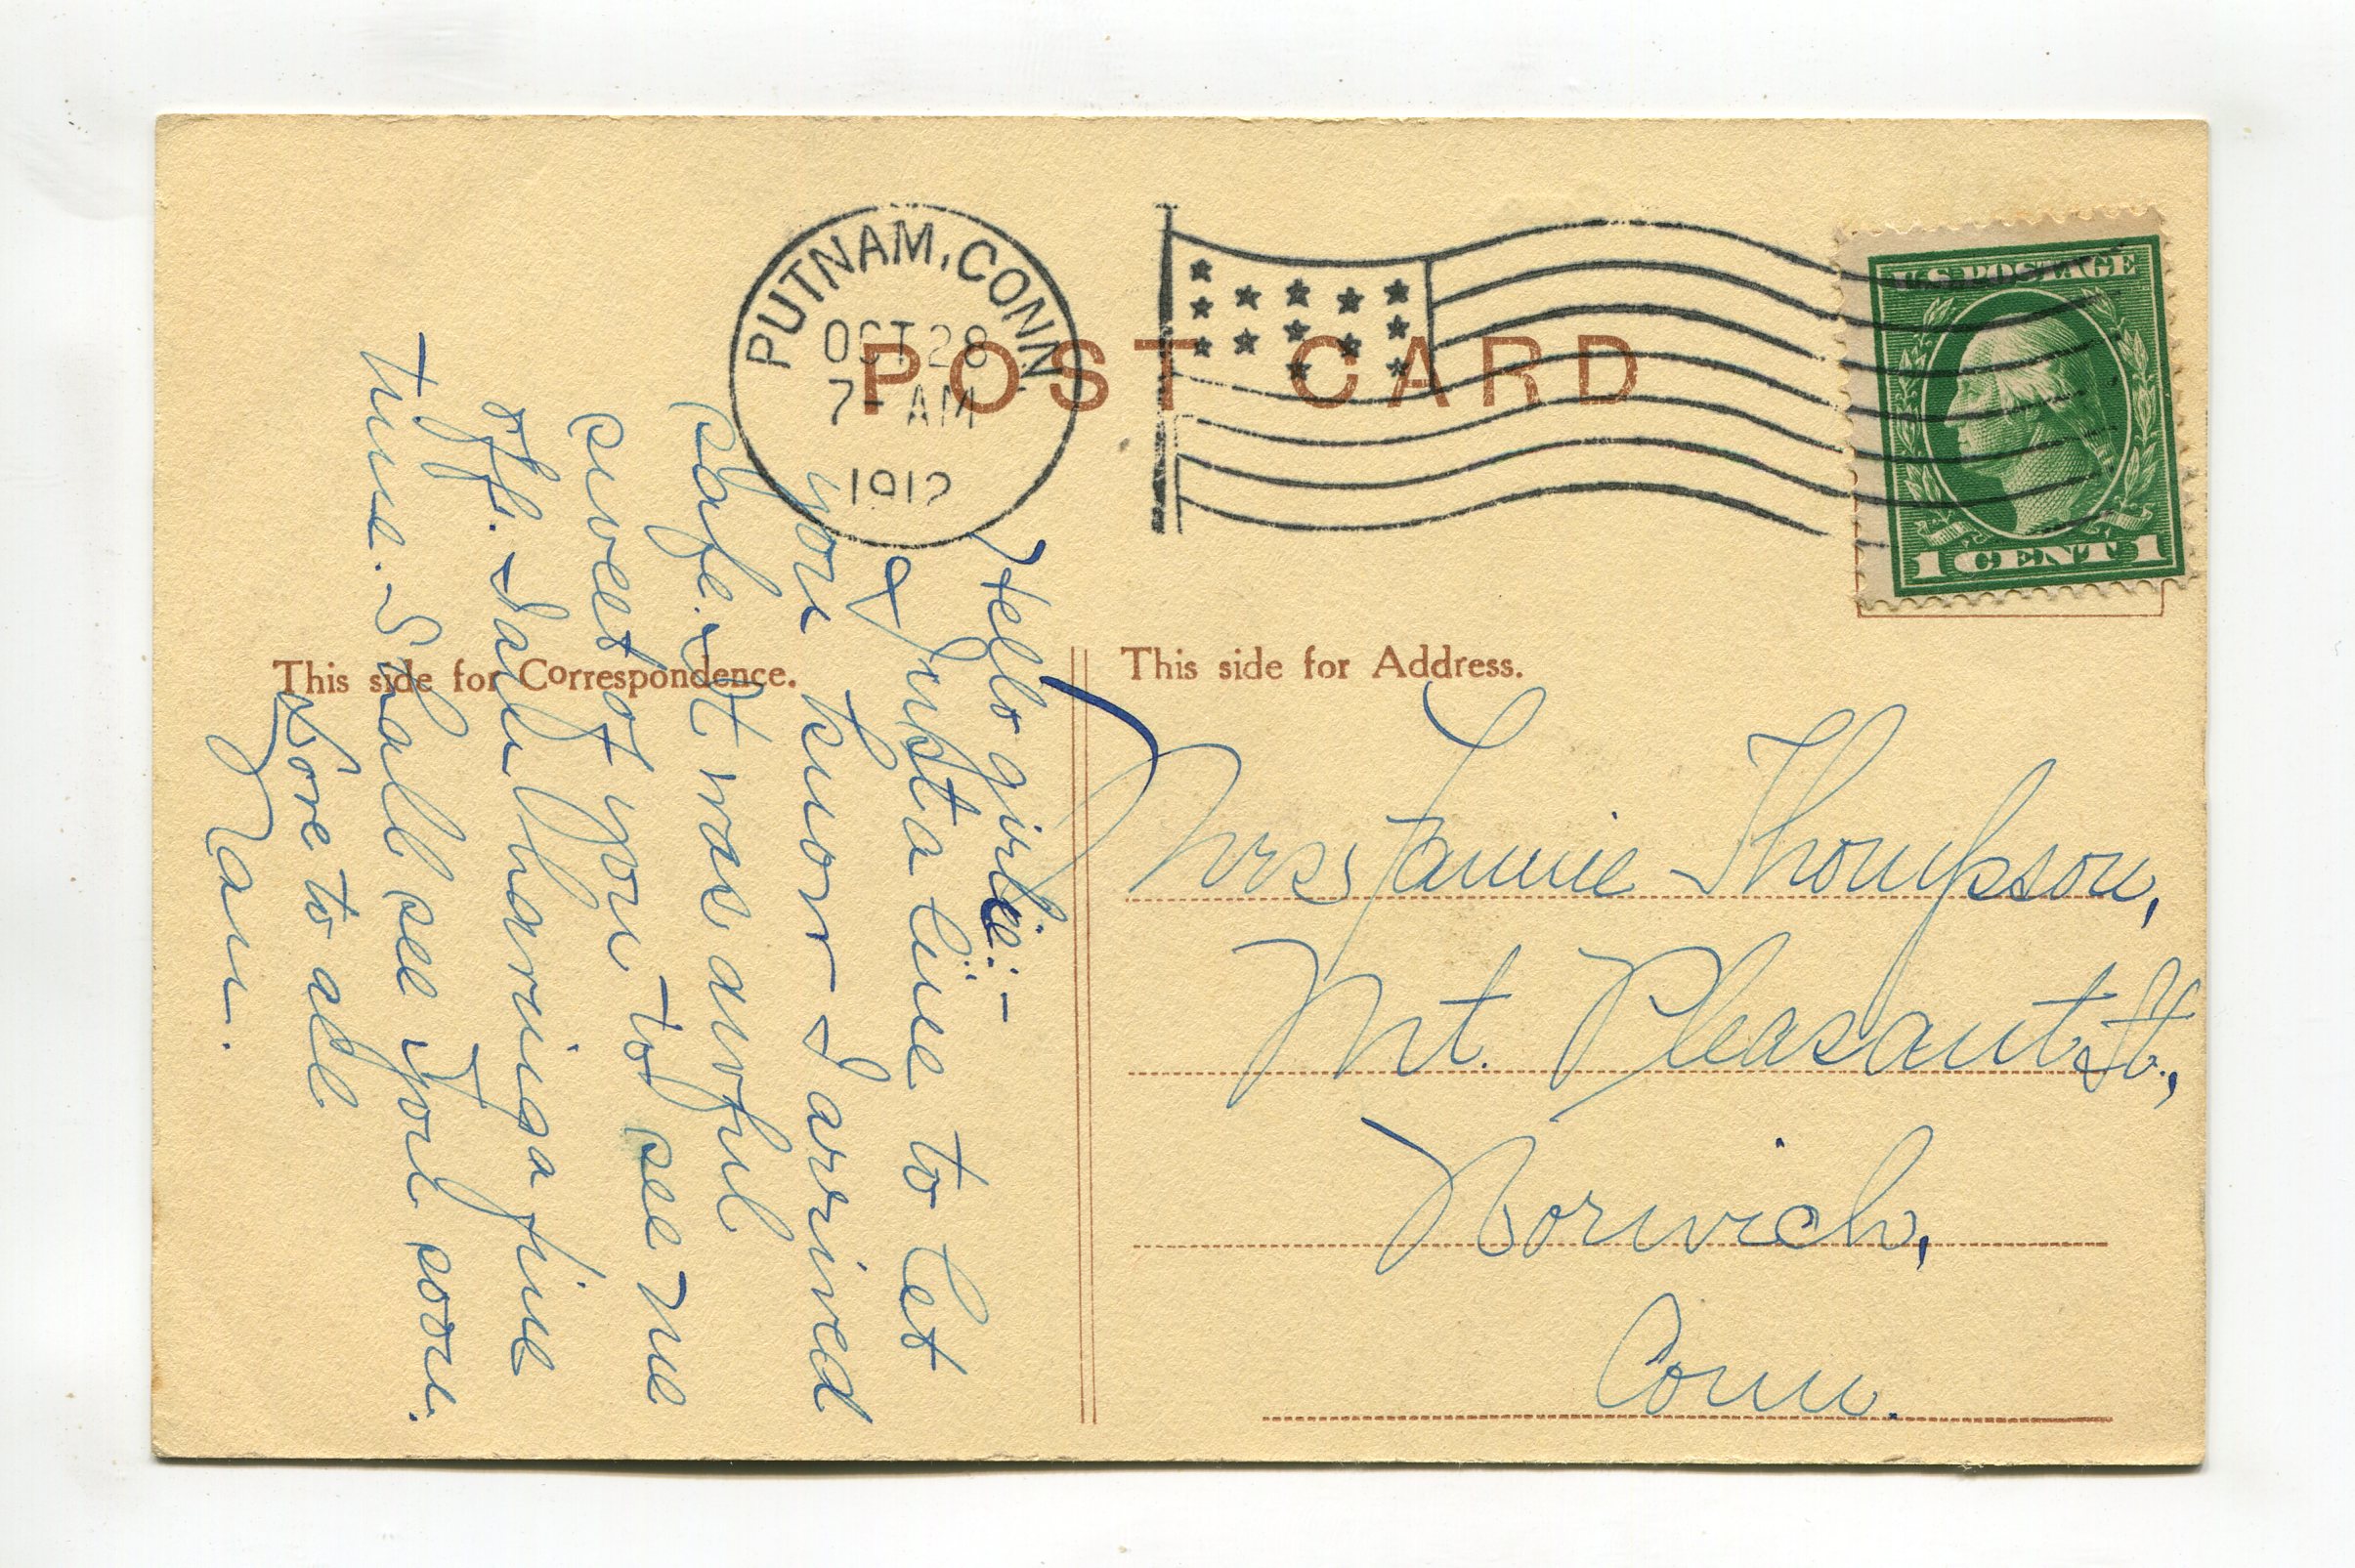 PUTNAM, CONN.
OCT 28
7- AM
1912
U.S. POSTAGE
1 CENT 1
POST CARD
This side for Correspondence.
This side for Address.
Hello girlie:-
Just a line to let
you know I arrived
safe. It was awful
sweet of you to see me
off. I am having a fine
time. Shall see you soon.
Love to all
Nan.
Mrs. Fannie Thompson,
Mt. Pleasant St.,
Norwich,
Conn.